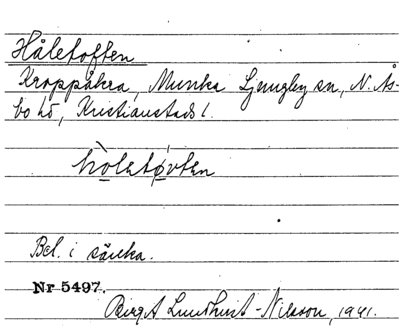 Håletoften
Kroppåkra, Munka Ljungby sn, N. Ås-
bo hd, Kristianstads l.
hò̲letǿ̲vten
Bel. i sänka.
Nr 5497.
Birgit Lundkvist-Nilsson, 1941.